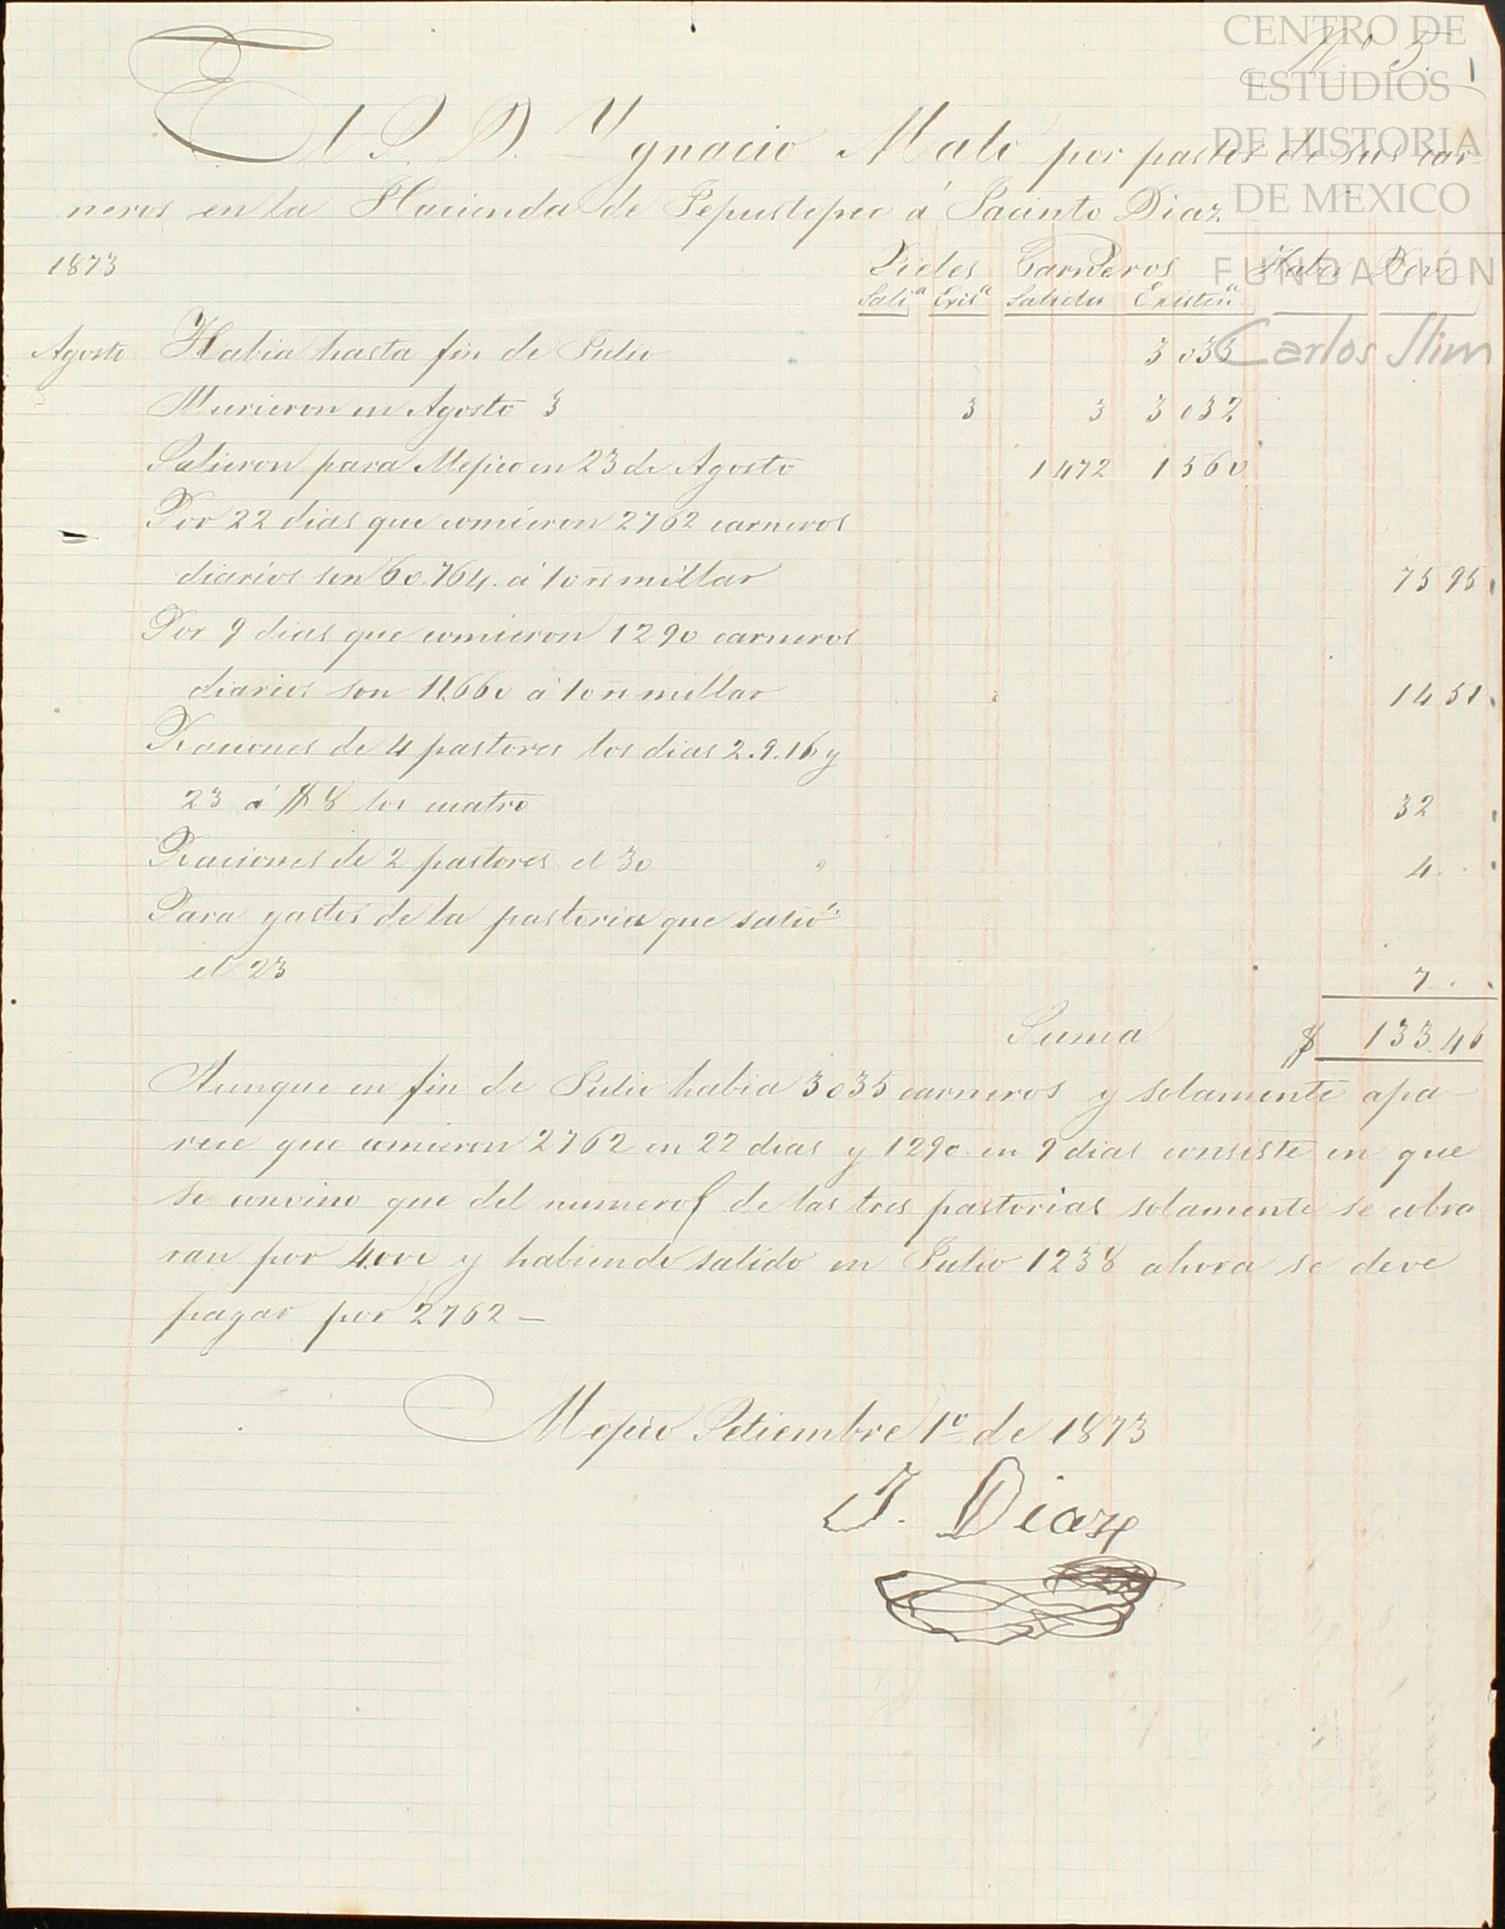 CENTRO DE
ESTUDIOS
DE HISTORIA
DE MEXICO
FUNDACIÓN
Carlos Slim
N.º 5.
El S. D. Ygnacio Malo por pastos de sus car-
neros en la Hacienda de Tepustepec á Jacinto Diaz
1873 Pieles Carneros Haber Deve
Salidᵃ Exisᵃ Salida Existenᵃ
Agosto Habia hasta fin de Julio 3035
Murieron en Agosto 3 3 3 3032
Salieron para Mejico en 23 de Agosto 1472 1560
Por 22 dias que comieron 2762 carneros
diarios son 60.764. á 10 rs millar 75 95
Por 9 dias que comieron 1290 carneros
diarios son 11.660 á 10 rs millar 14 51
Raciones de 4 pastores los dias 2.9.16 y
23 á $8 los cuatro 32
Raciones de 2 pastores el 30 " 4
Para gastos de la pastoria que salió
el 23 7
Suma $ 133.46
Aunque en fin de Julio habia 3035 carneros y solamente apa-
rece que comieron 2762 en 22 dias y 1290 en 9 dias consiste en que
se convino que del numero de las tres pastorias solamente se cobra
ran por 4.000 y habiendo salido en Julio 1238 ahora se deve
pagar por 2762 —
Mejico Setiembre 1º de 1873
J. Diaz